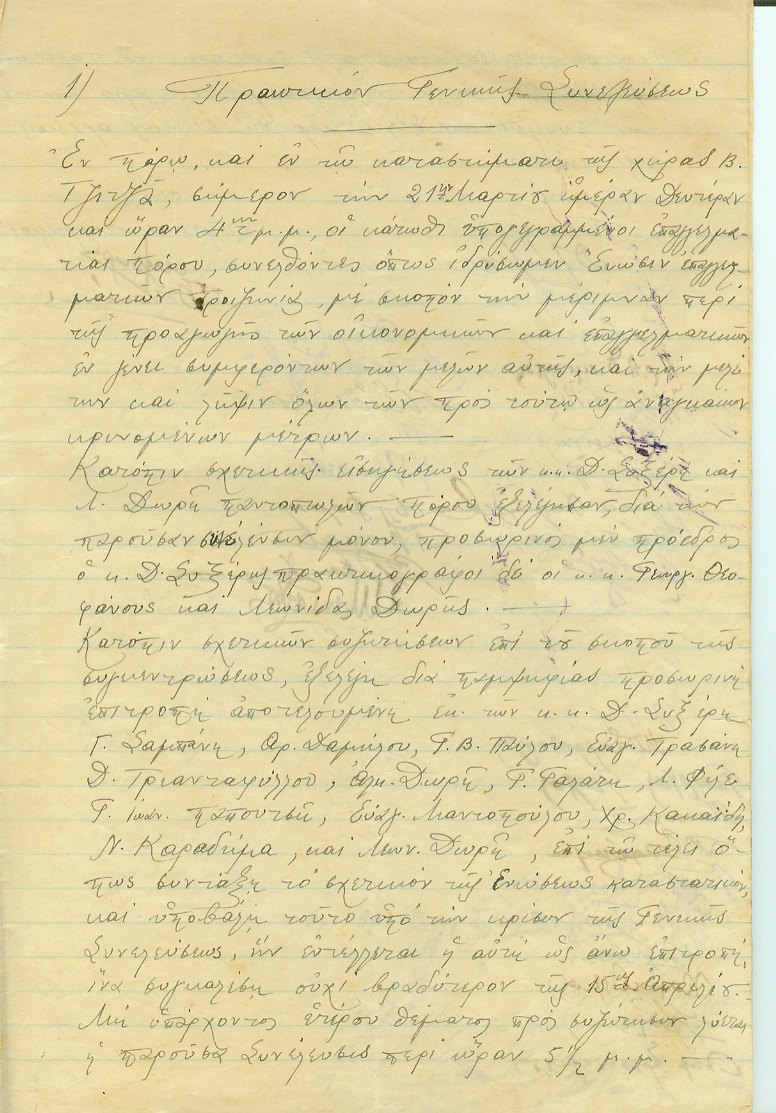 1) Πρακτικόν Γενικής Συνελεύσεως
Ἐν Πόρῳ, καὶ ἐν τῷ καταστήματι τῆς χήρας Β.
Τζιτζᾶ, σήμερον τὴν 21ην Μαρτίου ἡμέραν Δευτέραν
καὶ ὥραν 4ην μ.μ., οἱ κάτωθι ὑπογεγραμμένοι ἐπαγγελμα-
τίαι Πόρου, συνελθόντες ὅπως ἱδρύσωμεν Ἕνωσιν ἐπαγγελ-
ματιῶν Τροιζηνίας, μὲ σκοπὸν τὴν μέριμναν περὶ
τῆς προαγωγῆς τῶν οἰκονομικῶν καὶ ἐπαγγελματικῶν
ἐν γένει συμφερόντων τῶν μελῶν αὐτῆς, καὶ τὴν μελέ
την καὶ λῆψιν ὅλων τῶν πρὸς τοῦτο ὡς ἀναγκαίων
κρινομένων μέτρων.
Κατόπιν σχετικῆς εἰσηγήσεως τῶν κ.κ. Δ. Συξέρη καὶ
Λ. Δωρῆ παντοπωλῶν Πόρου ἐξελέγησαν, διὰ τὴν
παροῦσαν συνέλευσιν μόνον, προσωρινὸς μὲν πρόεδρος
ὁ κ. Δ. Συξέρης πρακτικογράφοι δὲ οἱ κ.κ. Γεωργ. Θεο-
φάνους καὶ Λεωνίδας Δωρῆς.
Κατόπιν σχετικῶν συζητήσεων ἐπὶ τοῦ σκοποῦ τῆς
συγκεντρώσεως, ἐξελέγη διὰ παμψηφίας προσωρινὴ
ἐπιτροπὴ ἀποτελουμένη ἐκ τῶν κ.κ. Δ. Συξέρη
Γ. Σαμπάνη, Αρ. Δαμύλου, Γ. Β. Παύλου, Εὐάγ. Τρασάνη
Δ. Τριανταφύλλου, Ἀλκ. Δωρῆ, Γ. Γαλάτη, Λ. Φίλε
Γ. Ἰωαν. Παπουτσῆ, Εὐαγ. Μαντοπούλου, Χρ. Κακαΐδη,
Ν. Καραδήμα, καὶ Λεων. Δωρῆ, ἐπὶ τῷ τέλει ὅ-
πως συντάξῃ τὸ σχετικὸν τῆς Ἑνώσεως καταστατικόν,
καὶ ὑποβάλῃ τοῦτο ὑπὸ τὴν κρίσιν τῆς Γενικῆς
Συνελεύσεως, ἣν ἐντέλλεται ἡ αὐτὴ ὡς ἄνω ἐπιτροπή,
ἵνα συγκαλέσῃ οὐχὶ βραδύτερον τῆς 15ης Ἀπριλίου.
Μὴ ὑπάρχοντος ἑτέρου θέματος πρὸς συζήτησιν λύεται
ἡ παροῦσα Συνέλευσις περὶ ὥραν 5 1/2 μ.μ.